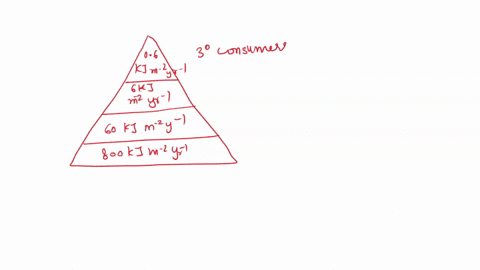 0.6
3° consumers
KJ m-2 yr-1
6KJ
m2 yr-1
60 KJ m-2 y-1
800 KJ m-2 yr-1